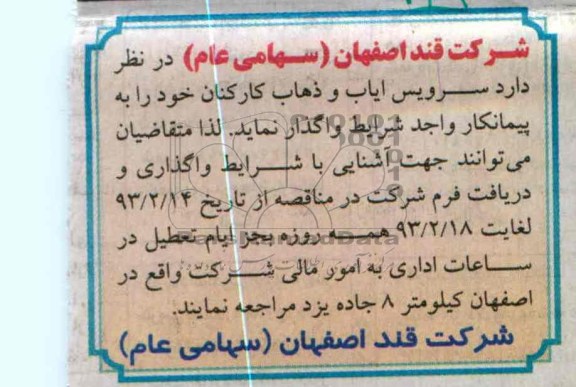 شرکت قند اصفهان (سهامی عام) در نظر
دارد سرویس ایاب و ذهاب کارکنان خود را به
پیمانکار واجد شرایط واگذار نماید. لذا متقاضیان
می‌توانند جهت آشنایی با شرایط واگذاری و
دریافت فرم شرکت در مناقصه از تاریخ ۹۳/۲/۱۴
لغایت ۹۳/۲/۱۸ همه روزه بجز ایام تعطیل در
ساعات اداری به امور مالی شرکت واقع در
اصفهان کیلومتر ۸ جاده یزد مراجعه نمایند.
شرکت قند اصفهان (سهامی عام)